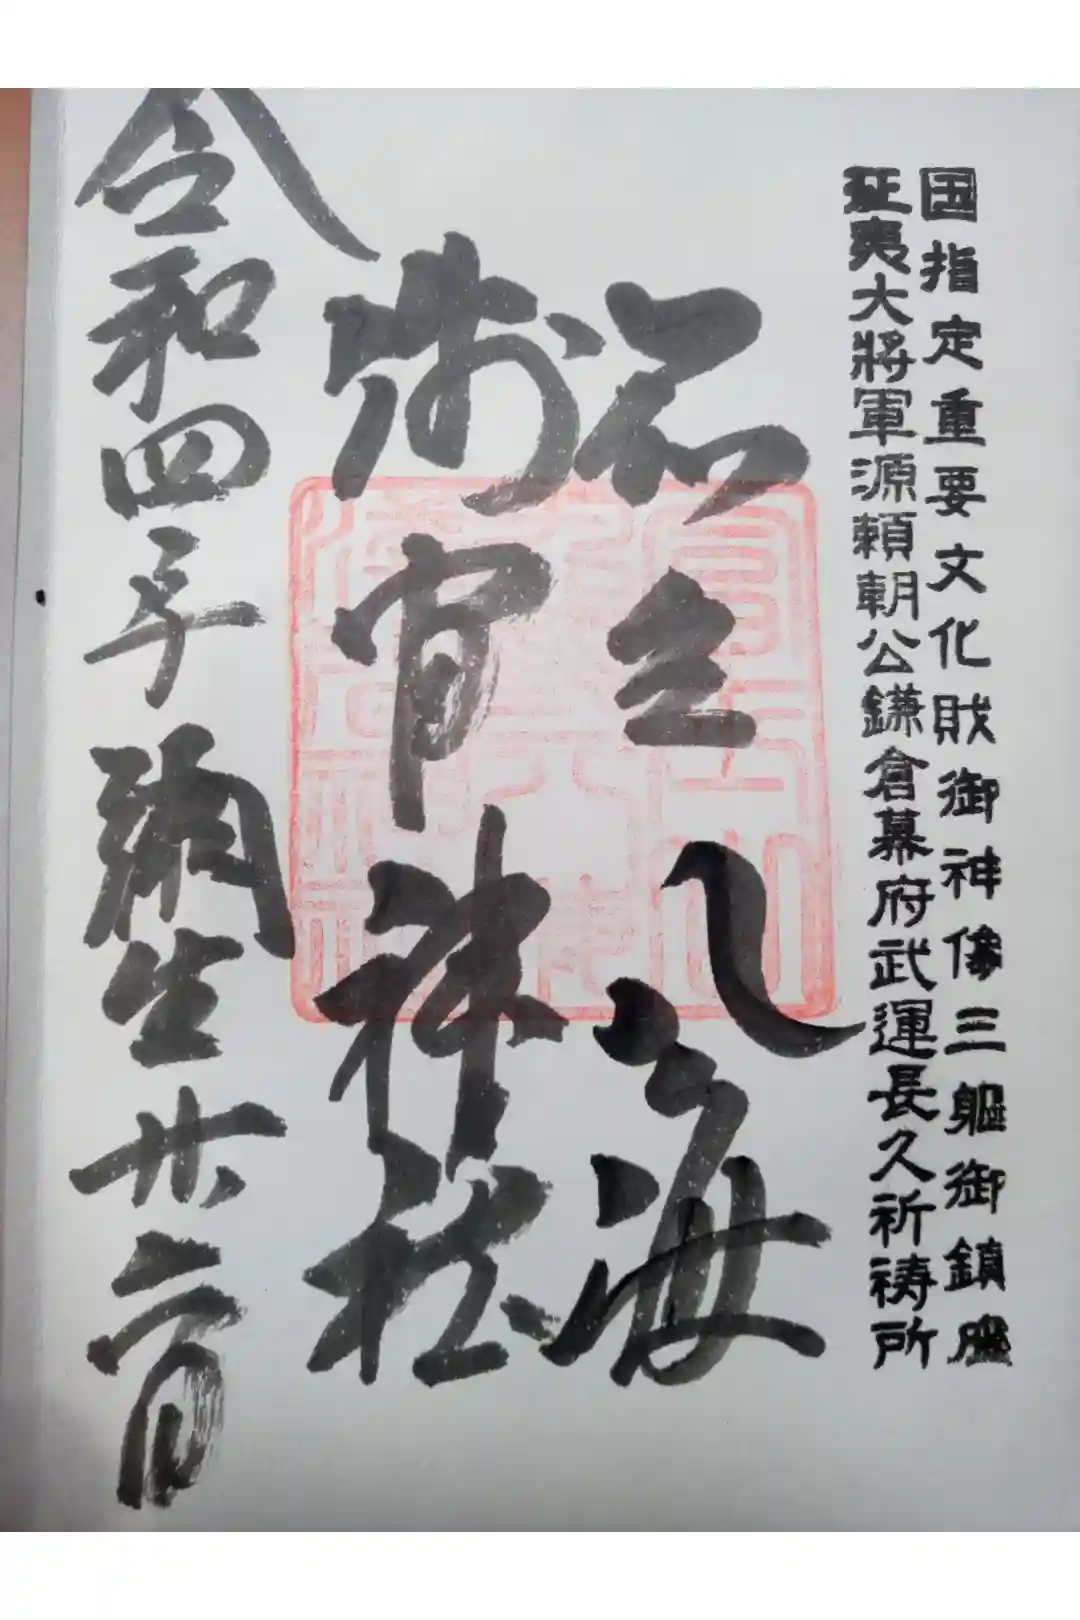 国指定重要文化財御神像三躯御鎮座
征夷大将軍源頼朝公鎌倉幕府武運長久祈祷所
八海
浅間神社
令和四年彌生廿六日